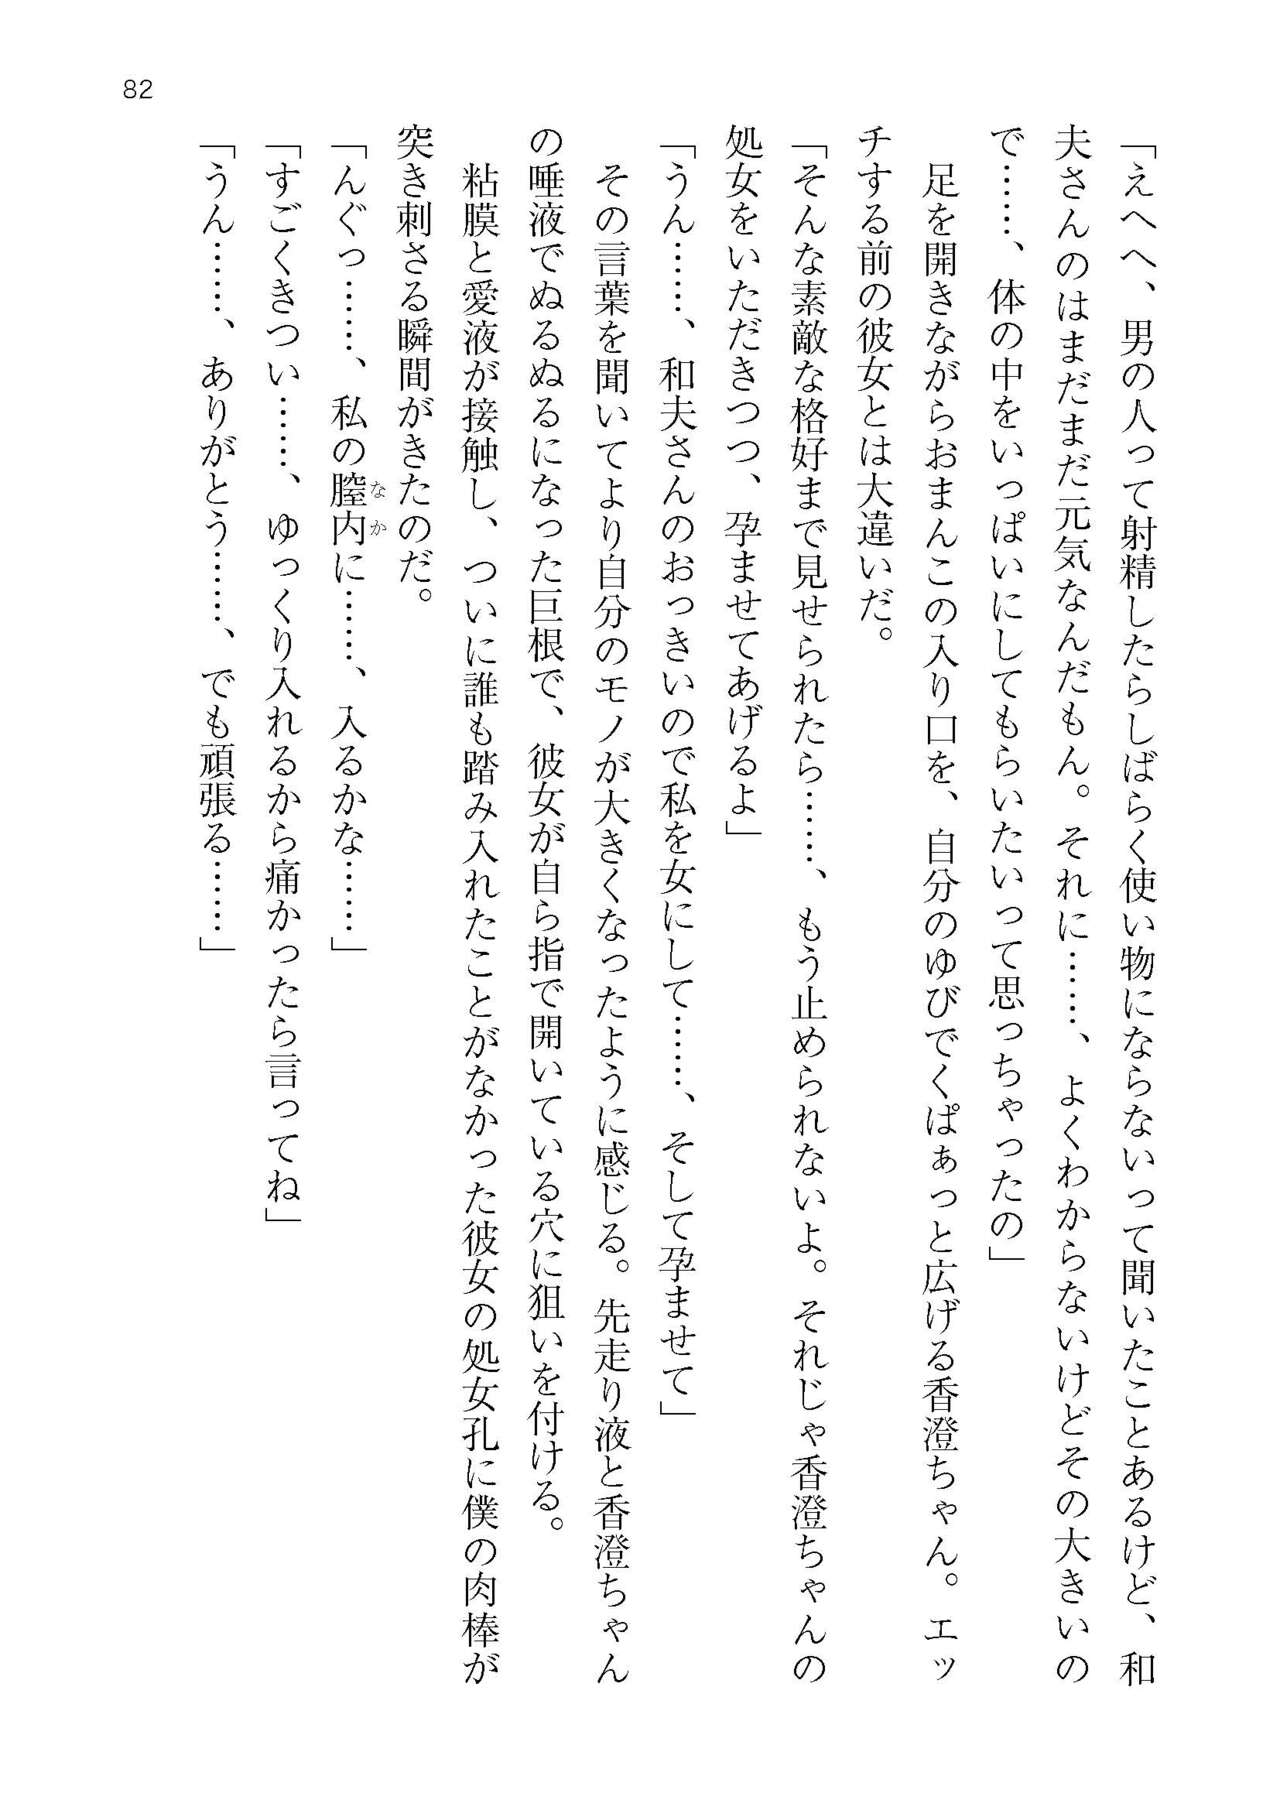 82
「えへへ、男の人って射精したらしばらく使い物にならないって聞いたことあるけど、和
夫さんのはまだまだ元気なんだもん。それに……、よくわからないけどその大きいの
で……、体の中をいっぱいにしてもらいたいって思っちゃったの」
　足を開きながらおまんこの入り口を、自分のゆびでくぱぁっと広げる香澄ちゃん。エッ
チする前の彼女とは大違いだ。
「そんな素敵な格好まで見せられたら……、もう止められないよ。それじゃ香澄ちゃんの
処女をいただきつつ、孕ませてあげるよ」
「うん……、和夫さんのおっきいので私を女にして……、そして孕ませて」
　その言葉を聞いてより自分のモノが大きくなったように感じる。先走り液と香澄ちゃん
の唾液でぬるぬるになった巨根で、彼女が自ら指で開いている穴に狙いを付ける。
　粘膜と愛液が接触し、ついに誰も踏み入れたことがなかった彼女の処女孔に僕の肉棒が
突き刺さる瞬間がきたのだ。
「んぐっ……、私の膣内なかに……、入るかな……」
「すごくきつい……、ゆっくり入れるから痛かったら言ってね」
「うん……、ありがとう……、でも頑張る……」